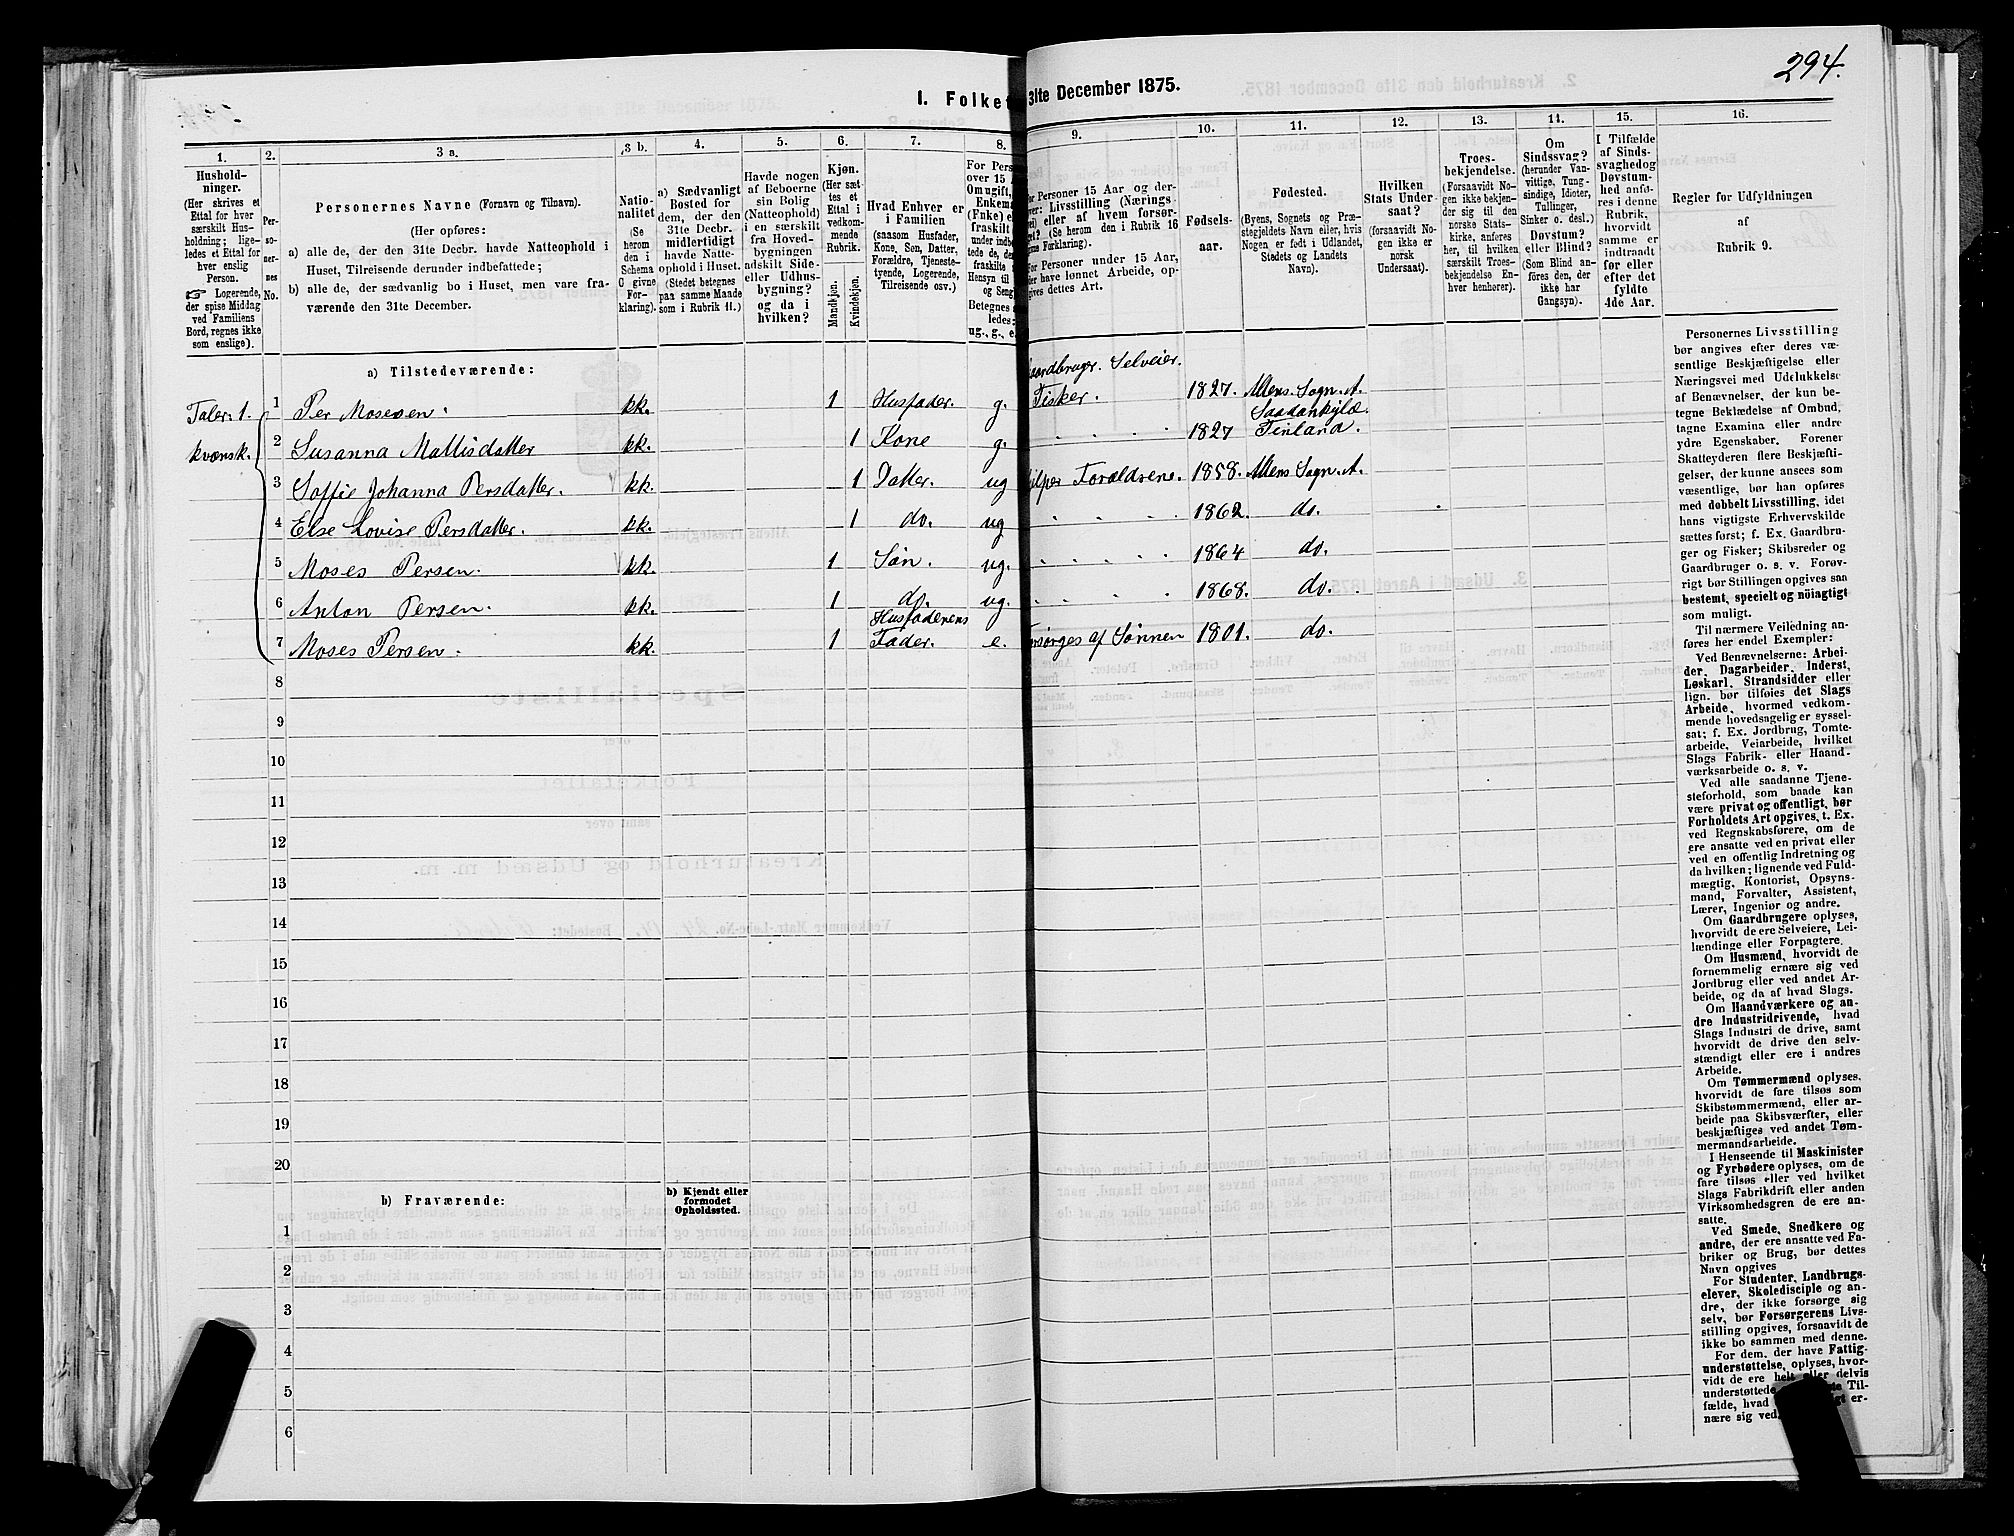 294.
I. Folket
31te December 1875.
1.
2.
3 a.
3 b.
4.
5.
6.
7.
8.
9.
10.
11.
12.
13.
14.
15.
16.
Hushold-
ninger.
(Her skrives et
Ettal for hver
særskilt Hus-
holdning; lige-
ledes et Ettal for
hver enslig
Person.
☞ Logerende,
der spise Middag
ved Familiens
Bord, regnes ikke
som enslige).
Per-
so-
ner-
nes
No.
Personernes Navne (Fornavn og Tilnavn).
(Her opføres:
a) alle de, der den 31te Decbr. havde Natteophold i
Huset, Tilreisende derunder indbefattede;
b) alle de, der sædvanlig bo i Huset, men vare fra-
værende den 31te December.
Natio-
nalitet
(Se
herom
den i
Schema
G givne
For-
klaring).
a) Sædvanligt
Bosted for
dem, der den
31te Decbr.
midlertidigt
havde Natte-
ophold i Huset.
(Stedet betegnes
paa samme Maade
som i Rubrik 11.)
Havde nogen
af Beboerne
sin Bolig
(Natteophold)
i en særskilt
fra Hoved-
bygningen
adskilt Side-
eller Udhus-
bygning?
og da i
hvilken?
Kjøn.
(Her sæt-
tes et
Ettal i
vedkom-
mende
Rubrik.
Mandkjøn.
Kvindekjøn.
Hvad Enhver er
i Familien
(saasom Husfader,
Kone, Søn, Datter,
Forældre, Tjeneste-
tyende, Logerende,
Tilreisende osv.)
For Pers
over 15
Om ugift,
Enkem
(Fnke) e
fraskilt
under indb
tede de,
fraskilte
Hensyn til
og Seng
Betegnes
ledes:
ug., g., e.
For Personer 15 Aar og der-
over: Livsstilling (Nærings
vei) eller af hvem forsør-
get? (Se herom den i Rubrik 16
givne Forklaring).
For Personer under 15 Aar,
der have lønnet Arbeide, op-
gives dettes Art.
Fødsels-
aar.
Fødested.
(Byens, Sognets og Præ-
stegjeldets Navn eller, hvis
Nogen er født i Udlandet,
Stedets og Landets
Navn).
Hvilken
Stats Under-
saat?
(forsaavidt No-
gen ikke er
norsk
Undersaat).
Troes-
bekjendelse.
(Forsaavidt No-
gen ikke bekjen-
der sig til den
norske Stats-
kirke, anføres
her, til hvilken
særskilt Troes-
bekjendelse En-
hver henhører).
Om
Sindssvag?
(herunder Van-
vittige, Tung-
sindige, Idioter,
Tullinger,
Sinker o. desl.)
Døvstum?
eller Blind?
(Som Blind an-
føres den, der
ikke har
Gangsyn).
I Tilfælde
af Sinds-
svaghed og
Døvstum-
hed anfø-
res i denne
Rubrik,
hvorvidt
samme er
indtraadt
før eller
efter det
fyldte
4de Aar.
Regler for Udfyldningen
af
Rubrik 9.
a) Tilstedeværende:
Taler. 1.
kvænsk.
Gaardbruger. Selveier.
1 Per Mosesen. kk. 1 Husfader. g. Fisker. 1827. Altens. Sogn. A.
2 Susanna Mattisdatter kk. 1 Kone g. 1827 Finland.
3 Soffie Johanna Persdatter. kk. 1 Datter. ug Forældrene. 1858. Altens Sogn. A.
4 Else Lovise Persdatter. kk. 1 do. ug 1862. do.
5 Moses Persen. kk. 1 Søn. ug. 1864 do.
6 Anton Persen. kk. 1 do. ug. 1868. do.
Husfaderens
7 Moses Persen. kk. 1 Fader. e. Forsørges af Sønnen 1801. do.
8
9
10
11
12
13
14
15
16
17
18
19
20
b) Fraværende:
b) Kjendt eller
formodet
Opholdssted.
1
2
3
4
5
6
Personernes Livsstilling
bør angives efter deres væ-
sentlige Beskjæftigelse eller
Næringsvei med Udelukkelse
af Benævnelser, der kun be-
tegne Beklædelse af Ombud,
tagne Examina eller andre
ydre Egenskaber. Forener
Skatteyderen flere Beskjæfti-
gelser, der kunne ansees som
væsentlige, bør han opføres
med dobbelt Livsstilling, idet
hans vigtigste Erhvervskilde
sættes først; f. Ex. Gaardbru-
ger og Fisker; Skibsreder og
Gaardbruger o. s. v. Forøv-
rigt bør Stillingen opgives saa
bestemt, specielt og nøiagtigt
som muligt.
Til nærmere Veiledning an-
føres her endel Exempler:
Ved Benævnelserne: Arbei-
der, Dagarbeider, Inderst,
Løskarl, Strandsidder eller
lign. bør tilføies det Slags
Arbeide, hvormed vedkom-
mende hovedsagelig er syssel-
sat; f. Ex. Jordbrug, Tomte-
arbeide, Veiarbeide, hvilket
Slags Fabrik- eller Haand-
værksarbeide o. s. v.
Ved alle saadanne Tjene-
steforhold, som baade kan
være privat og offentligt, bør
Forholdets Art opgives, t. Ex.
ved Regnskabsførere, om de
ere ansatte ved en privat eller
ved en offentlig Indretning og
da hvilken; lignende ved Fuld-
mægtig, Kontorist, Opsyns-
mand, Forvalter, Assistent,
Lærer, Ingeniør og andre.
Om Gaardbrugere oplyses,
hvorvidt de ere Selveiere, Lei-
lændinge eller Forpagtere.
Om Husmænd, hvorvidt de
fornemmelig ernære sig ved
Jordbrug eller ved andet Ar-
beide, og da af hvad Slags.
Om Haandværkere og an-
dre Industridrivende, hvad
Slags Industri de drive, samt
hvorvidt de drive den selv-
stændigt eller ere i andres
Arbeide.
Om Tømmermænd oplyses,
hvorvidt de fare tilsøs som
Skibstømmermænd, eller ar-
beide paa Skibsværfter, eller
beskjæftiges ved andet Tøm-
mermandsarbeide.
I Henseende til Maskinister
og Fyrbødere oplyses, om de
fare tilsøs eller ved hvilket
Slags Fabrikdrift eller anden
Virksomhedsgren de ere an-
satte.
Ved Smede, Snedkere og
andre, der ere ansatte ved Fa-
briker og Brug, bør dettes
Navn opgives
For Studenter, Landbrugs-
elever, Skoledisciple og an-
dre, der ikke forsørge sig
selv, bør Forsørgerens Livs-
stilling opgives, forsaavidt de
ikke bo sammen med denne.
For dem, der have Fattig-
understøttelse, oplyses, hvor-
vidt de ere helt eller delvis
understøttede Til-
fælde, hvad er-
nære sig ved.